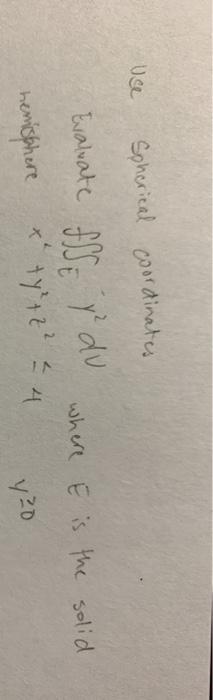 Use Spherical coordinates
Evaluate ∫∫∫_E y² dV where E is the solid
hemisphere x² + y² + z² ≤ 4 y ≥ 0